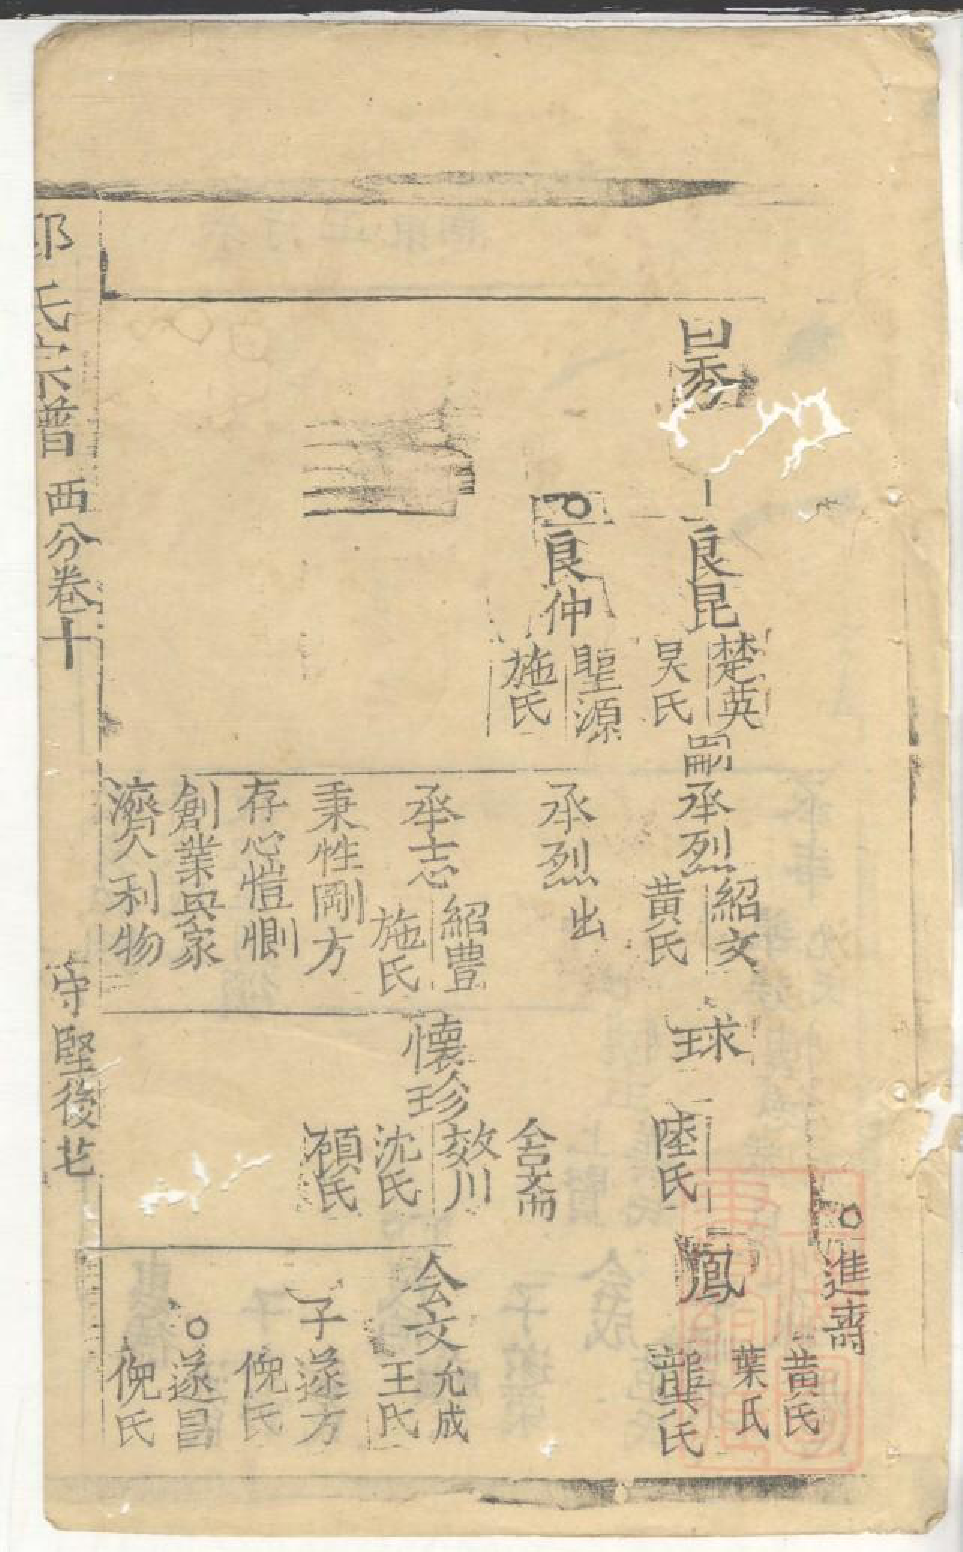 良昆
楚英
吴氏
嗣
承烈
紹文
黄氏
球
陸氏
鳳
龔氏
葉氏
黄氏
進齋
良仲
聖源
施氏
承烈
出
承志
紹豊
施氏
秉性剛方
存心愷惻
創業興家
濟人利物
懷珍
舍斋
效川
沈氏
顧氏
会文
允成
王氏
子遂方
倪氏
遂昌
倪氏
氏宗譜
西分卷十
守堅後